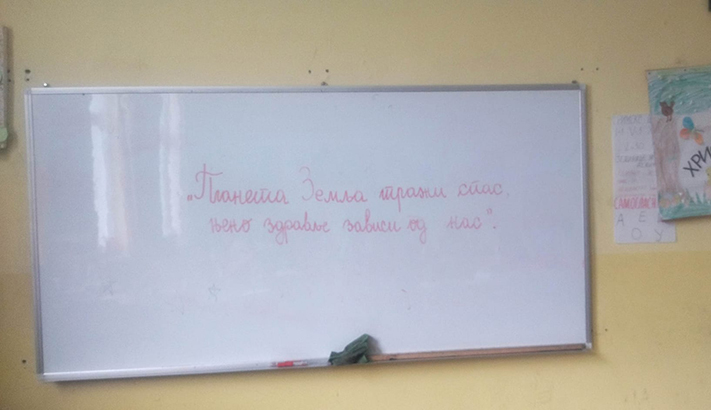 „Планета Земља тражи спас,
њено здравље зависи од нас“.
ХРИ
САМОГЛАСН
А Е
О У